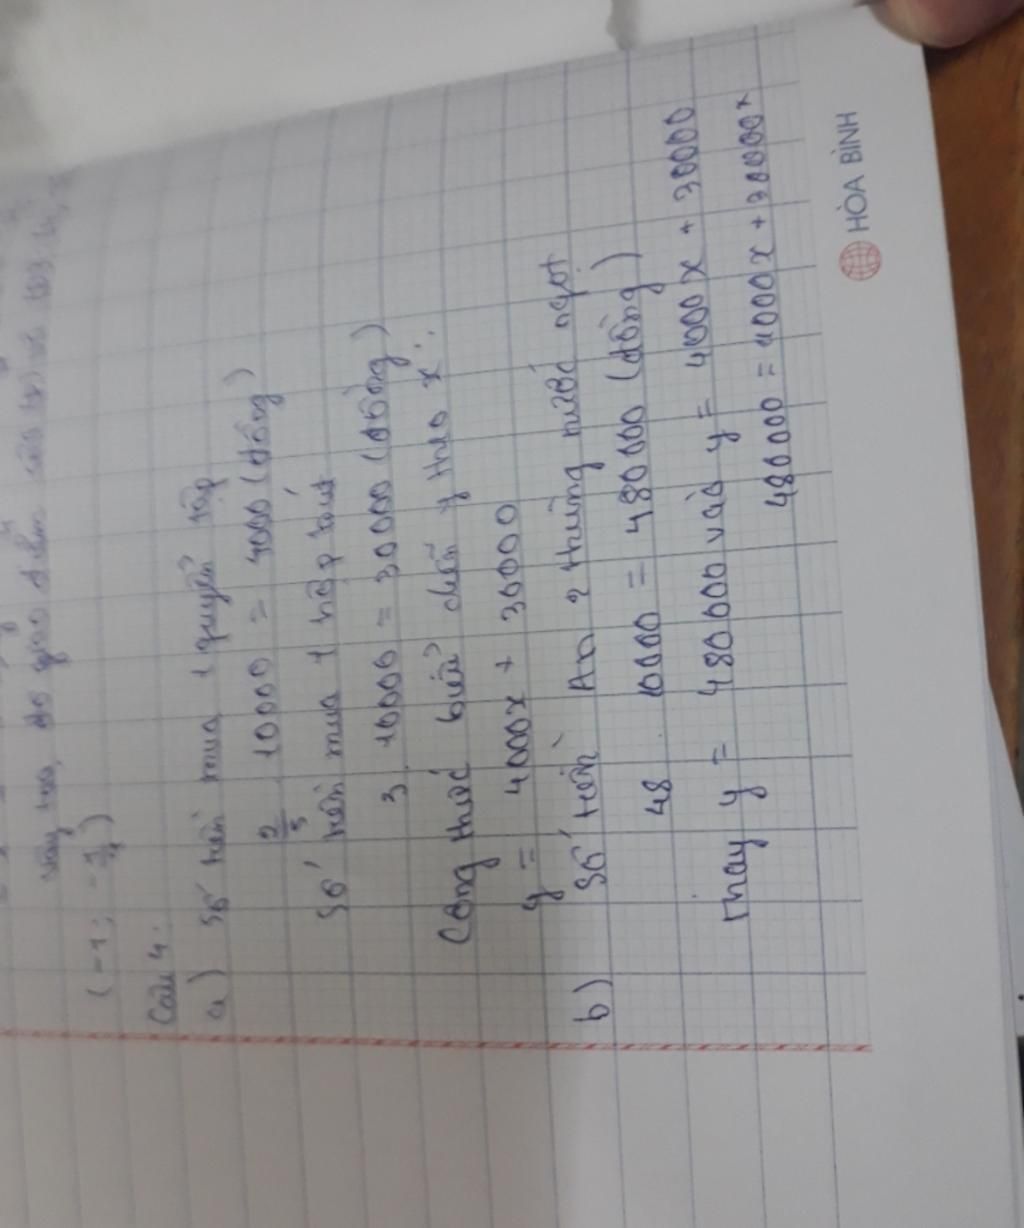 vậy tọa độ giao điểm của
(-1; -1/4)
Câu 4.
a) Số tiền mua 1 quyển tập
2/5 . 10000 = 4000 (đồng)
Số tiền mua 1 hộp bút
3 . 10000 = 30000 (đồng)
Công thức biểu diễn y theo x:
y = 4000x + 30000
b) Số tiền An 2 thùng nước ngọt
48 . 10000 = 480000 (đồng)
Thay y = 480000 vào y = 4000x + 30000
480000 = 4000x + 30000x
HÒA BÌNH